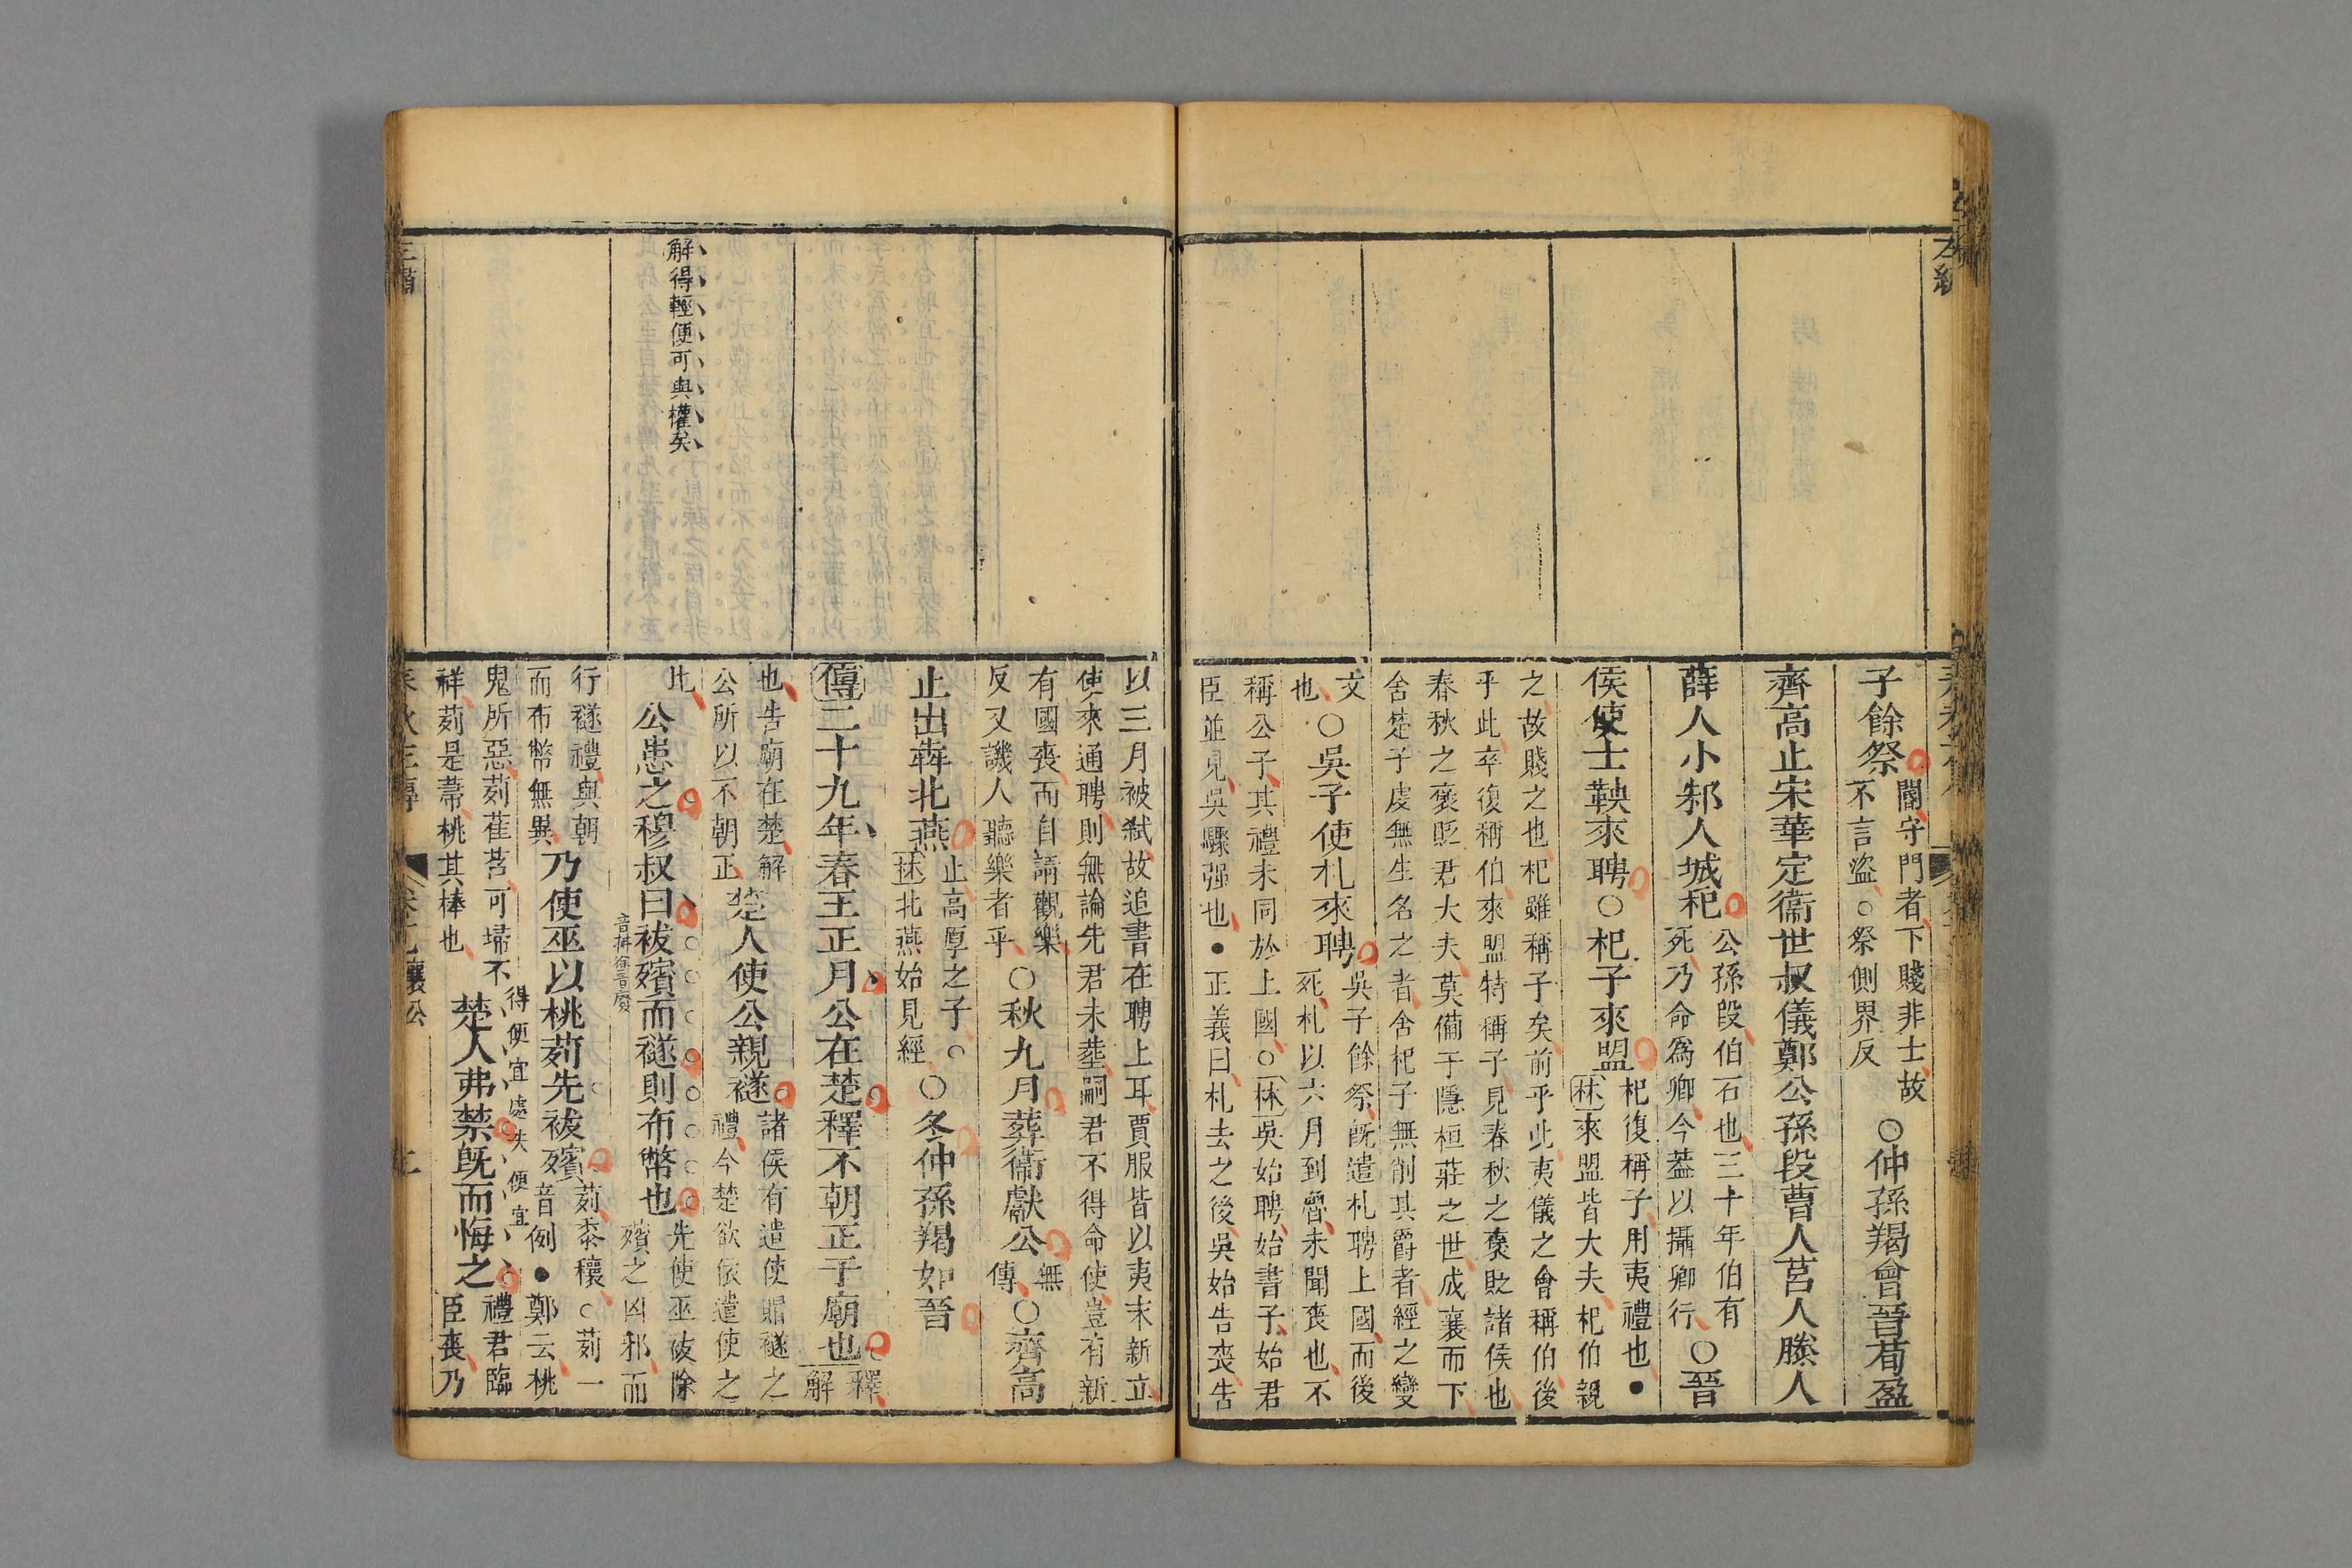 子餘祭
閽守門者下賤非士故
不言盜○祭側界反
○仲孫羯會晉荀盈
齊高止宋華定衞世叔儀鄭公孫段曹人莒人滕人
薛人小邾人城杞
公孫段伯石也三十年伯有
死乃命爲卿今蓋以攝卿行
○晉
侯使士鞅來聘○杞子來盟
杞復稱子用夷禮也●
林來盟皆大夫杞伯親
之故賤之也杞雖稱子矣前乎此夷儀之會稱伯後
乎此卒復稱伯來盟特稱子見春秋之襃貶諸侯也
春秋之襃貶君大夫莫備于隱桓莊之世成襄而下
舍楚子虔無生名之者舍杞子無削其爵者經之變
文
也
○吳子使札來聘
吳子餘祭旣遣札聘上國而後
死札以六月到魯未聞喪也不
稱公子其禮未同於上國○林吳始聘始書子始君
臣並見吳驟强也●正義曰札去之後吳始告喪告
以三月被弑故追書在聘上耳賈服皆以夷末新立
使來通聘則無論先君未葬嗣君不得命使豈有新
有國喪而自請觀樂
反又譏人聽樂者乎
○秋九月葬衞獻公
無
傳
○齊高
止出犇北燕
止高厚之子○
林北燕始見經
○冬仲孫羯如晉
傳二十九年春王正月公在楚釋不朝正于廟也
釋
解
也告廟在楚解
公所以不朝正
楚人使公親襚
諸侯有遣使賵襚之
禮今楚欲依遣使之
比
公患之穆叔曰祓殯而襚則布幣也
先使巫祓除
殯之凶邪而
行襚禮與朝
而布幣無異
乃使巫以桃茢先祓殯
茢黍穰○茢一
音例●鄭云桃
鬼所惡茢萑苕可埽不
祥茢是菷桃其棒也
楚人弗禁旣而悔之
禮君臨
臣喪乃
解得輕便可與權矣
得便宜處失便宜
卷十九襄公